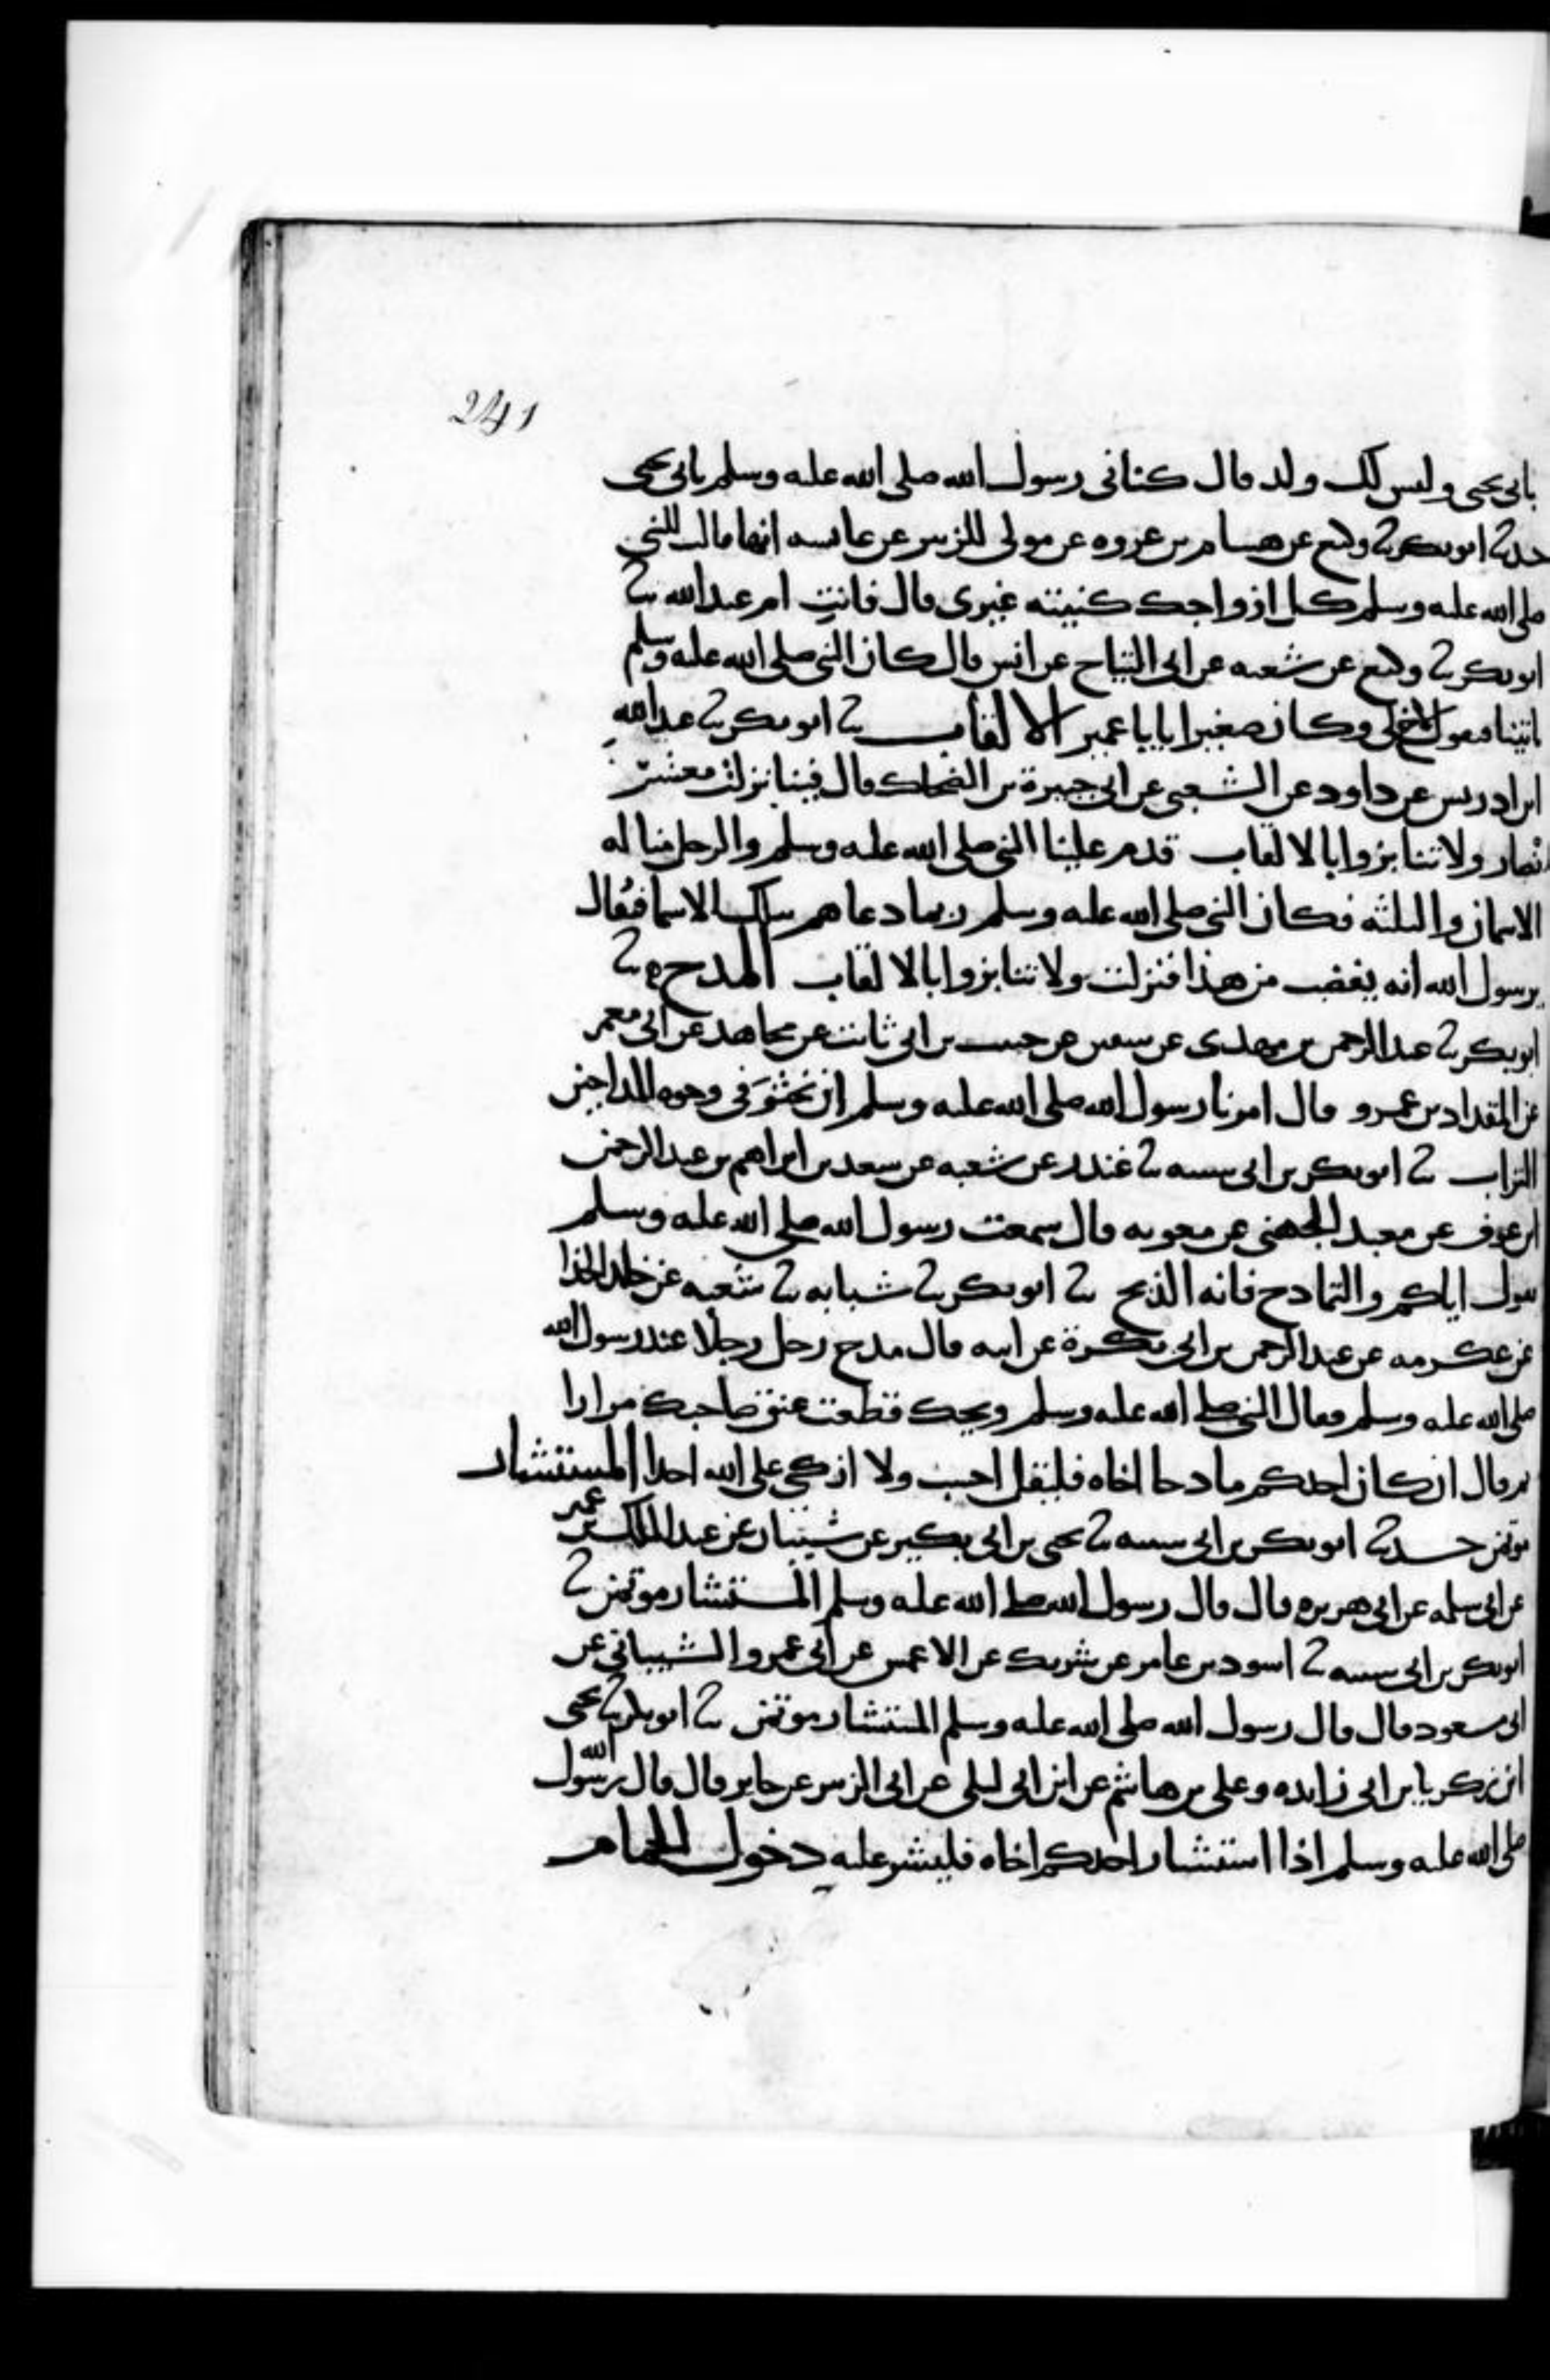 241
بابى يحيى وليس لك ولد قال كنانى رسول الله صلى الله عليه وسلم بابى يحيى
حدثنا ابو بكر ثنا وكيع عن هشام بن عروه عن مولى للزبير عن عائشه انها قالت للنبى
صلى الله عليه وسلم كل ازواجك كنيته غيرى قال فانتِ ام عبد الله ثنا
ابو بكر ثنا وكيع عن شعبه عن ابى التياح عن انس قال كان النبى صلى الله عليه وسلم
ياتينا فيقول لاخ لى وكان صغيرا يابا عمير الالقاب ثنا ابو بكر ثنا عبد الله
ابن ادريس عن داود عن الشعبى عن ابى جبيرة بن الضحاك قال فينا نزلت معشر
الانصار ولا تنابزوا بالالقاب قدم علينا النبى صلى الله عليه وسلم والرجل منا له
الاسمان والثلثه فكان النبى صلى الله عليه وسلم ربما دعاهم بتلك الاسما فيُقال
يرسول الله انه يغضب من هذا فنزلت ولا تنابزوا بالالقاب المدح ثنا
ابو بكر ثنا عبد الرحمن بن مهدى عن سفين عن حبيب بن ابى ثابت عن مجاهد عن ابى معمر
عن المقداد بن عمرو قال امرنا رسول الله صلى الله عليه وسلم ان نحثوَ فى وجوه المداحين
التراب ثنا ابو بكر بن ابى شيبه ثنا غندر عن شعبه عن سعد بن ابراهيم بن عبد الرحمن
ابن عوف عن معبد الجهنى عن معويه قال سمعت رسول الله صلى الله عليه وسلم
يقول اياكم والتمادح فانه الذبح ثنا ابو بكر ثنا شبابه ثنا شعبه عن خلد الحذا
عن عكرمه عن عبد الرحمن بن ابى بكرة عن ابيه قال مدح رجل رجلا عند رسول الله
صلى الله عليه وسلم فقال النبى صلى الله عليه وسلم ويحك قطعت عنق صاحبك مرارا
ثم قال ان كان احدكم مادحا اخاه فليقل احسب ولا ازكى على الله احدا المستشار
موتمن حدثنا ابو بكر بن ابى شيبه ثنا يحيى بن ابى بكير عن شيبان عن عبد الملك بن عمير
عن ابى سلمه عن ابى هريره قال قال رسول الله صلى الله عليه وسلم المستشار موتمن ثنا
ابو بكر بن ابى شيبه ثنا اسود بن عامر عن شريك عن الاعمش عن ابى عمرو الشيبانى عن
ابى مسعود قال قال رسول الله صلى الله عليه وسلم المستشار موتمن ثنا ابو بكر ثنا يحيى
ابن زكريا بن ابى زايده وعلى بن هاشم عن ابن ابى ليلى عن ابى الزبير عن جابر قال قال رسول الله
صلى الله عليه وسلم اذا استشار احدكم اخاه فليشر عليه دخول الحمام